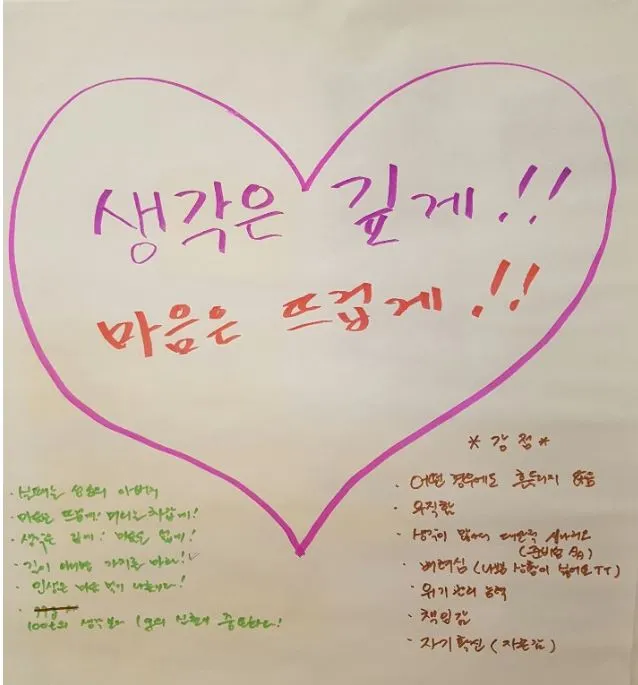 생각은 깊게!!
마음은 뜨겁게!!
· 실패는 성공의 아버지
· 마음은 뜨겁게! 머리는 차갑게!
· 생각은 깊게! 마음은 넓게!
· 길이 아니면 가지를 마라!
· 인생은 마음 먹기 나름이다!
· 100번의 생각보다 1번의 실천이 중요하다!
* 강점 *
· 어떤 경우에도 흔들리지 않음
· 우직함
· 생각이 많아서
· 버텨심 (나쁜 상황이 많어요 TT)
· 위기관리 능력
· 책임감
· 자기확신 (자존감)